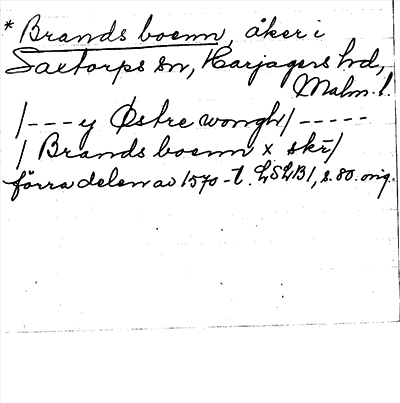 * Brands boenn, åker i
Saxtorps sn, Harjagers hd,
Malm. l.
/--- y Østre wongh/-----
/ Brands boenn x skr/
förra delen av 1570-t. LSLB1, s. 80. orig.